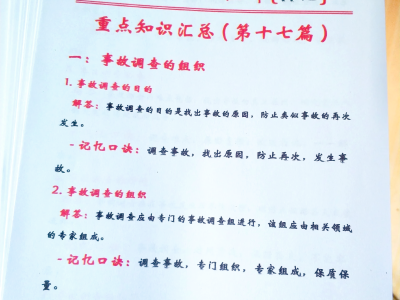 重点知识汇总（第十七篇）
一：事故调查的组织
1. 事故调查的目的
解答：事故调查的目的是找出事故的原因，防止类似事故的再次
发生。
- 记忆口诀：调查事故，找出原因，防止再次，发生事
故。
2. 事故调查的组织
解答：事故调查应由专门的事故调查组进行，该组应由相关领域
的专家组成。
- 记忆口诀：调查事故，专门组织，专家组成，保质保
量。